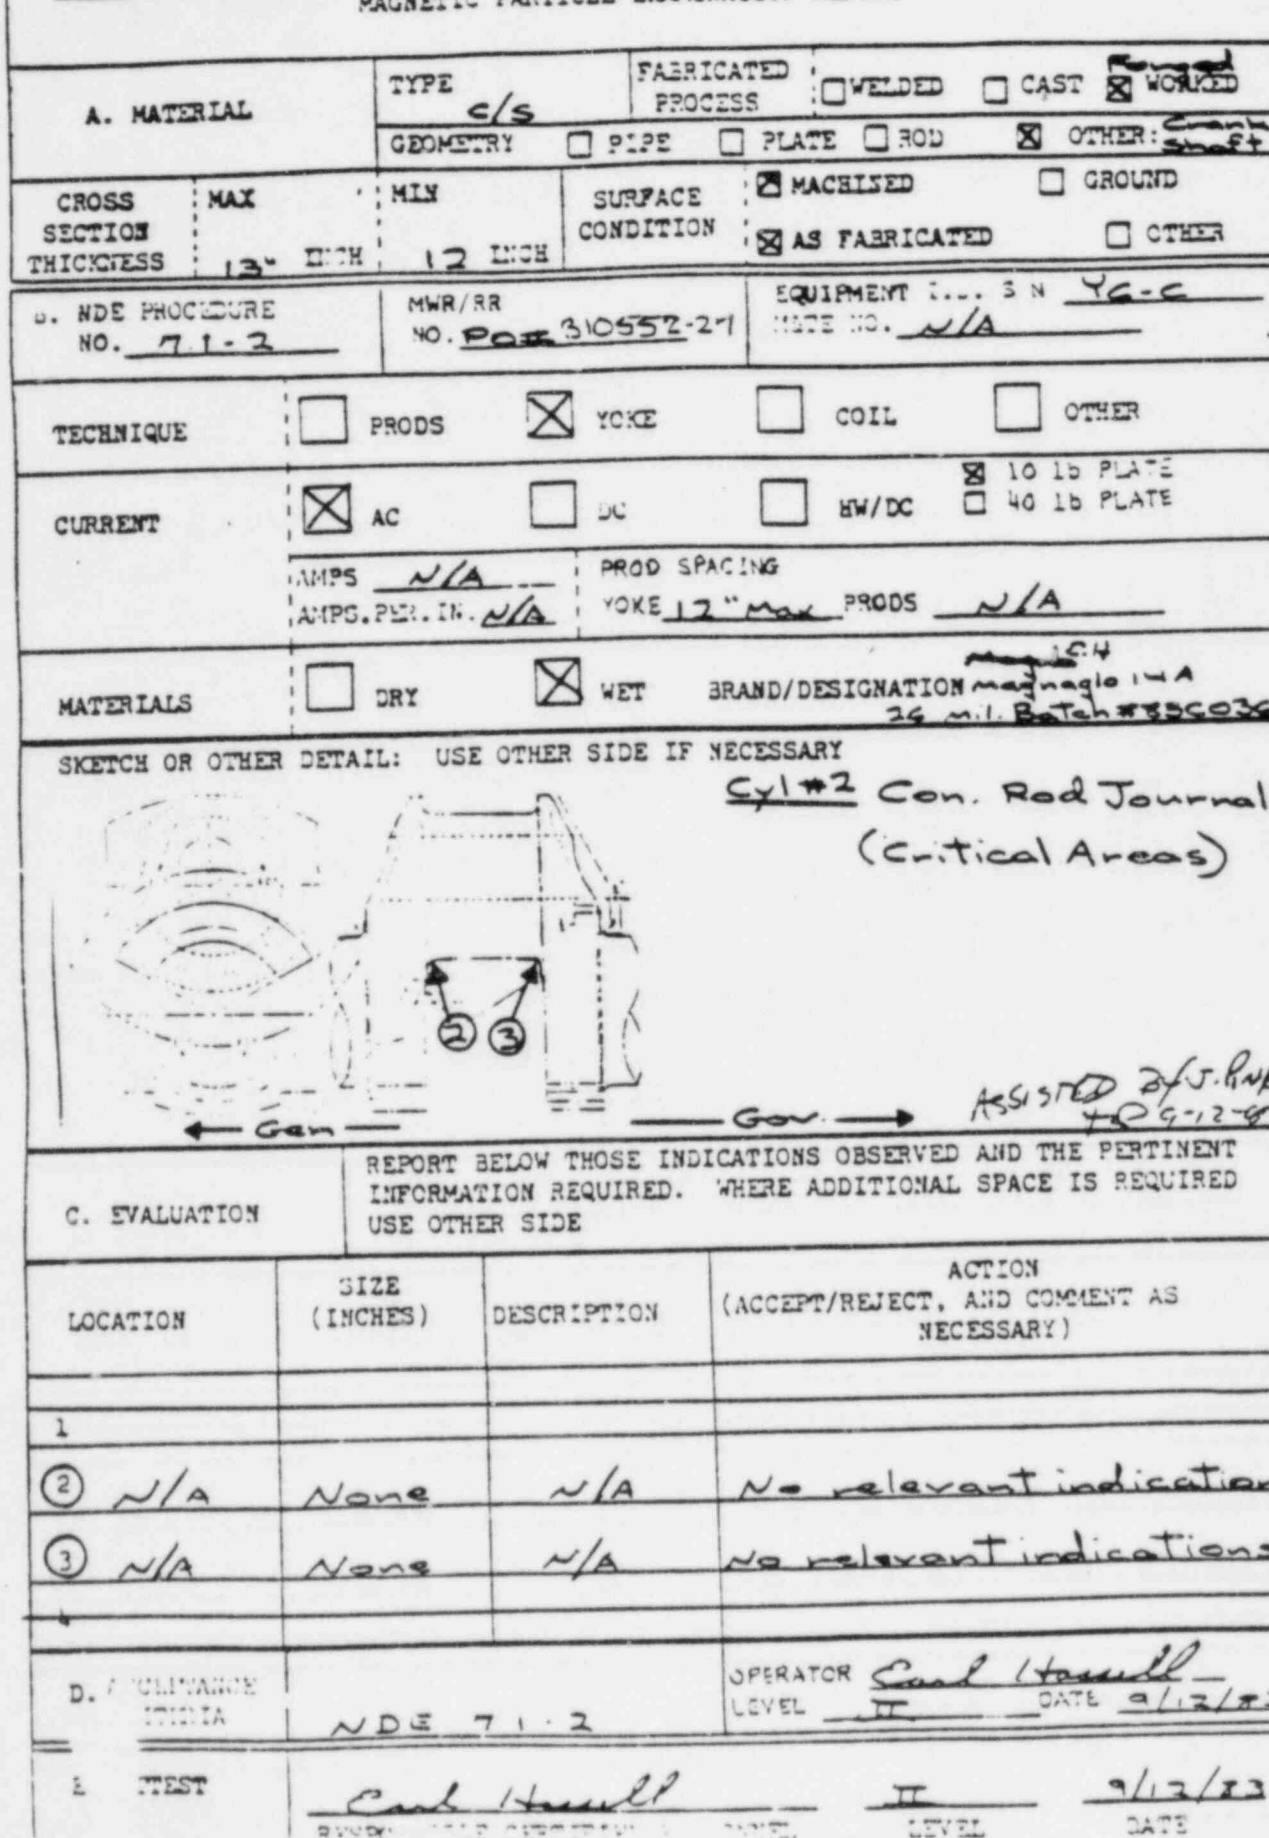 MAGNETIC PARTICLE
A. MATERIAL
TYPE
C/S
FABRICATED PROCESS
WELDED
CAST
Forged
WORKED
GEOMETRY
PIPE
PLATE
ROD
OTHER: Crank Shaft
CROSS SECTION THICKNESS
MAX
13" INCH
MIN
12 INCH
SURFACE CONDITION
MACHINED
GROUND
AS FABRICATED
OTHER
B. NDE PROCEDURE
NO. 7.1-2
MWR/RR
NO. PO# 310552-27
EQUIPMENT S N YG-C
NO. N/A
TECHNIQUE
PRODS
YOKE
COIL
OTHER
CURRENT
AC
DC
HW/DC
10 lb PLATE
40 lb PLATE
AMPS N/A
AMPS.PER.IN. N/A
PROD SPACING
YOKE 12" Max PRODS N/A
MATERIALS
DRY
WET
BRAND/DESIGNATION magnaglo 14A
Batch
SKETCH OR OTHER DETAIL: USE OTHER SIDE IF NECESSARY
Cyl #2 Con. Rod Journal
(Critical Areas)
2 3
ASSISTED By J.
Gen
Gov.
C. EVALUATION
REPORT BELOW THOSE INDICATIONS OBSERVED AND THE PERTINENT
INFORMATION REQUIRED. WHERE ADDITIONAL SPACE IS REQUIRED
USE OTHER SIDE
LOCATION
SIZE (INCHES)
DESCRIPTION
ACTION
(ACCEPT/REJECT, AND COMMENT AS
NECESSARY)
1
2 N/A None N/A No relevant indication
3 N/A None N/A No relevant indications
D.
NDE 7 1 - 2
OPERATOR Earl Hassell
LEVEL II DATE 9/12/83
E
Earl Hassell II 9/12/83
LEVEL DATE